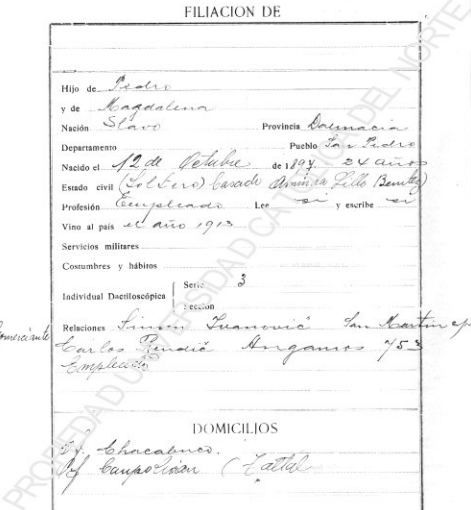 FILIACION DE
Hijo de Pedro
y de Magdalena
Nación Slavo Provincia Dalmacia
Departamento Pueblo San Pedro
Nacido el 12 de Octubre de 1897 24 años
Estado civil (Soltero) Casado Aminda Lillo Benitez)
Profesión Empleado Lee si y escribe si
Vino al país el año 1913
Servicios militares
Costumbres y hábitos
Individual Dactiloscópica Serie 3
Sección
Comerciante Relaciones Simon Ivanović San Martin
Carlos Rendić Angamos 753
Empleado
DOMICILIOS
Of. Chacabuco.
Of Caupolican (Taltal
PROPIEDAD UNIVERSIDAD CATOLICA DEL NORTE